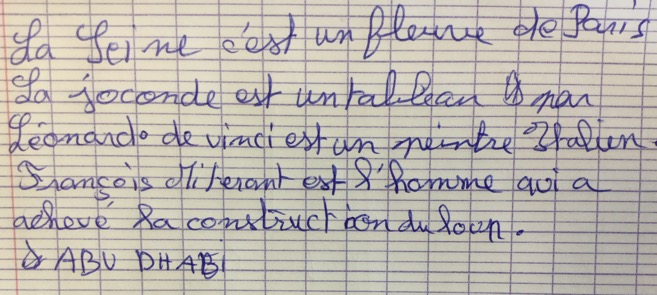 La Seine c'est un fleuve de Paris
La joconde est un tableau par
Léonardo de vinci est un peintre Italien.
François Miterant est l'homme qui a
achevé la construction du louv.
à ABU DHABI